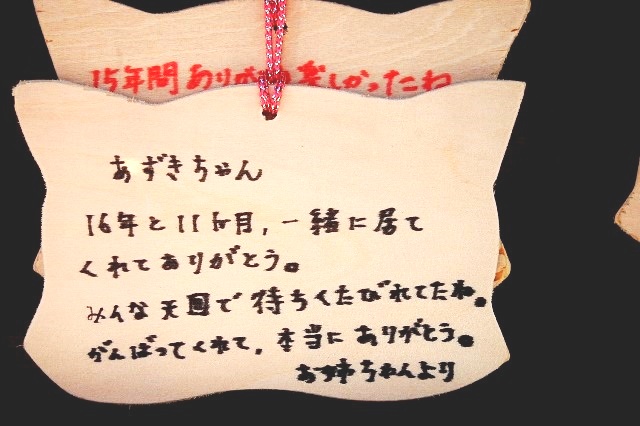 15年間ありがとう楽しかったね
あずきちゃん
16年と11ヶ月,一緒に居て
くれてありがとう。
みんな天国で待ちくたびれてたね。
がんばってくれて,本当にありがとう。
お姉ちゃんより